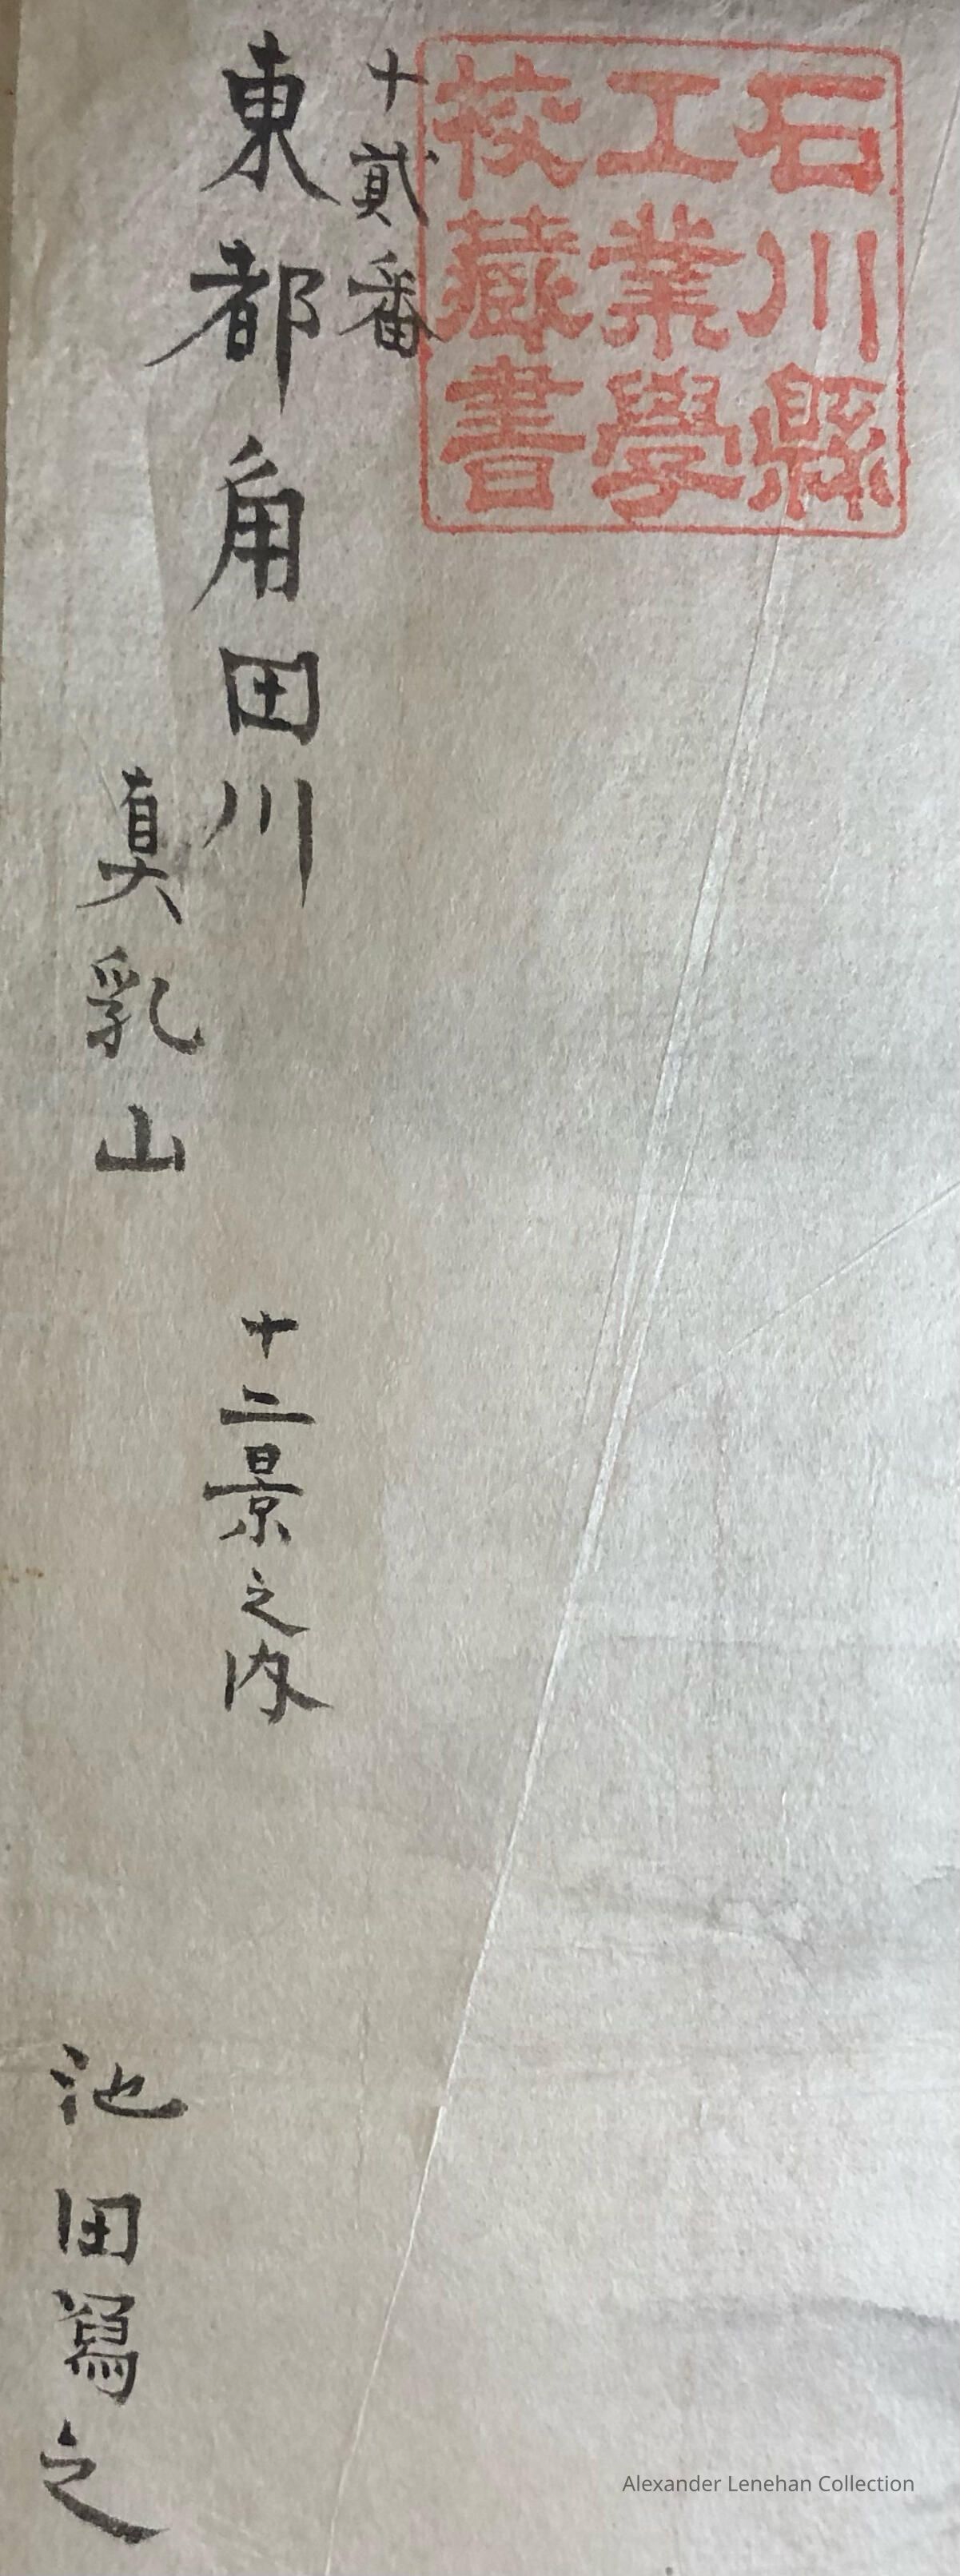 石川縣
工業學
校藏書
十貳番
東都角田川
真乳山
十二景之内
池田寫之
Alexander Lenehan Collection